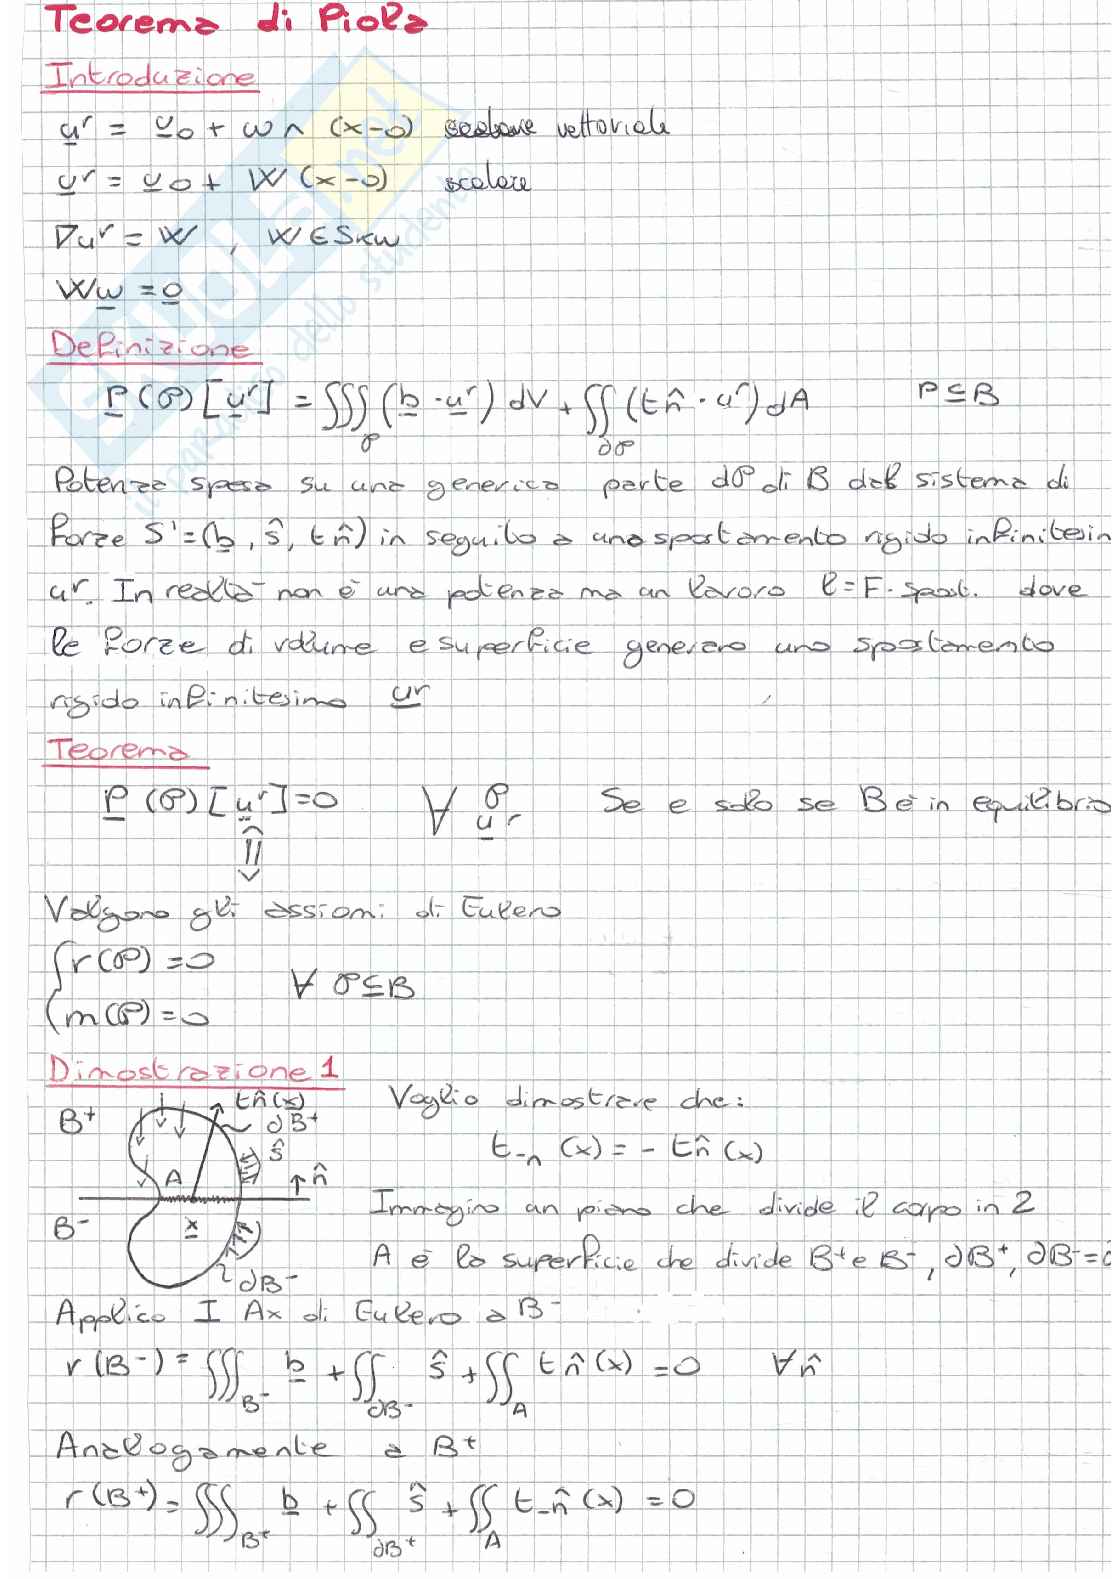 Teorema di Piola
Introduzione
u^r = u_0 + ω ∧ (x-o) vettoriale
u^r = u_0 + W (x-o) scalare
∇u^r = W , W ∈ Skw
Wω = 0
Definizione
P(P)[u^r] = ∭_P (b · u^r) dV + ∬_∂P (t n̂ · u^r) dA P ⊆ B
Potenza spesa su una generica parte dP di B dal sistema di
forze S' = (b, ŝ, t n̂) in seguito a uno spostamento rigido infinitesim
u^r. In realtà non è una potenza ma un lavoro l = F · spost. dove
le forze di volume e superficie generano uno spostamento
rigido infinitesimo u^r
Teorema
P (P) [u^r] = 0 ∀ P u^r Se e solo se B è in equilibrio
⇕
Valgono gli assiomi di Eulero
{ r(P) = 0
{ m(P) = 0 ∀ P ⊆ B
Dimostrazione 1
Voglio dimostrare che:
t_-n (x) = - t n̂ (x)
B+ t n̂(x) ∂B+ ŝ A n̂
B- x ∂B-
Immagino un piano che divide il corpo in 2
A è la superficie che divide B+ e B-, ∂B+, ∂B- =
Applico I Ax di Eulero a B-
r (B-) = ∭_B- b + ∬_∂B- ŝ + ∬_A t n̂ (x) = 0 ∀ n̂
Analogamente a B+
r (B+) = ∭_B+ b + ∬_∂B+ ŝ + ∬_A t_-n̂ (x) = 0